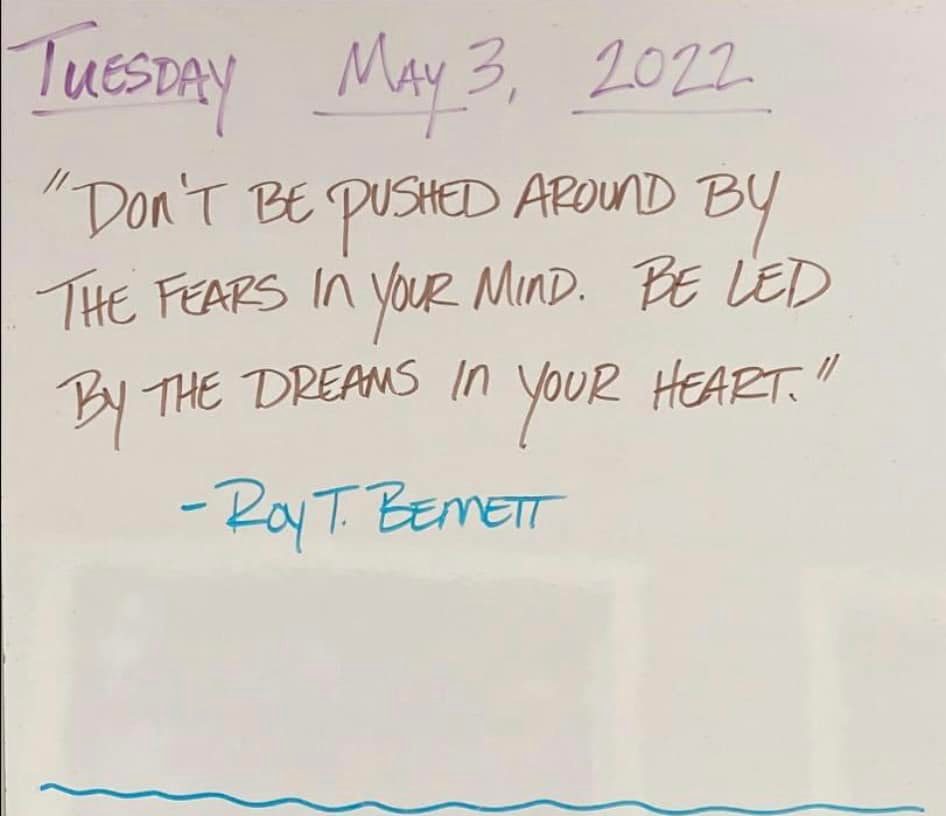 Tuesday May 3, 2022
"Don't be pushed around by
the fears in your mind. Be led
by the dreams in your heart."
- Roy T. Bennett